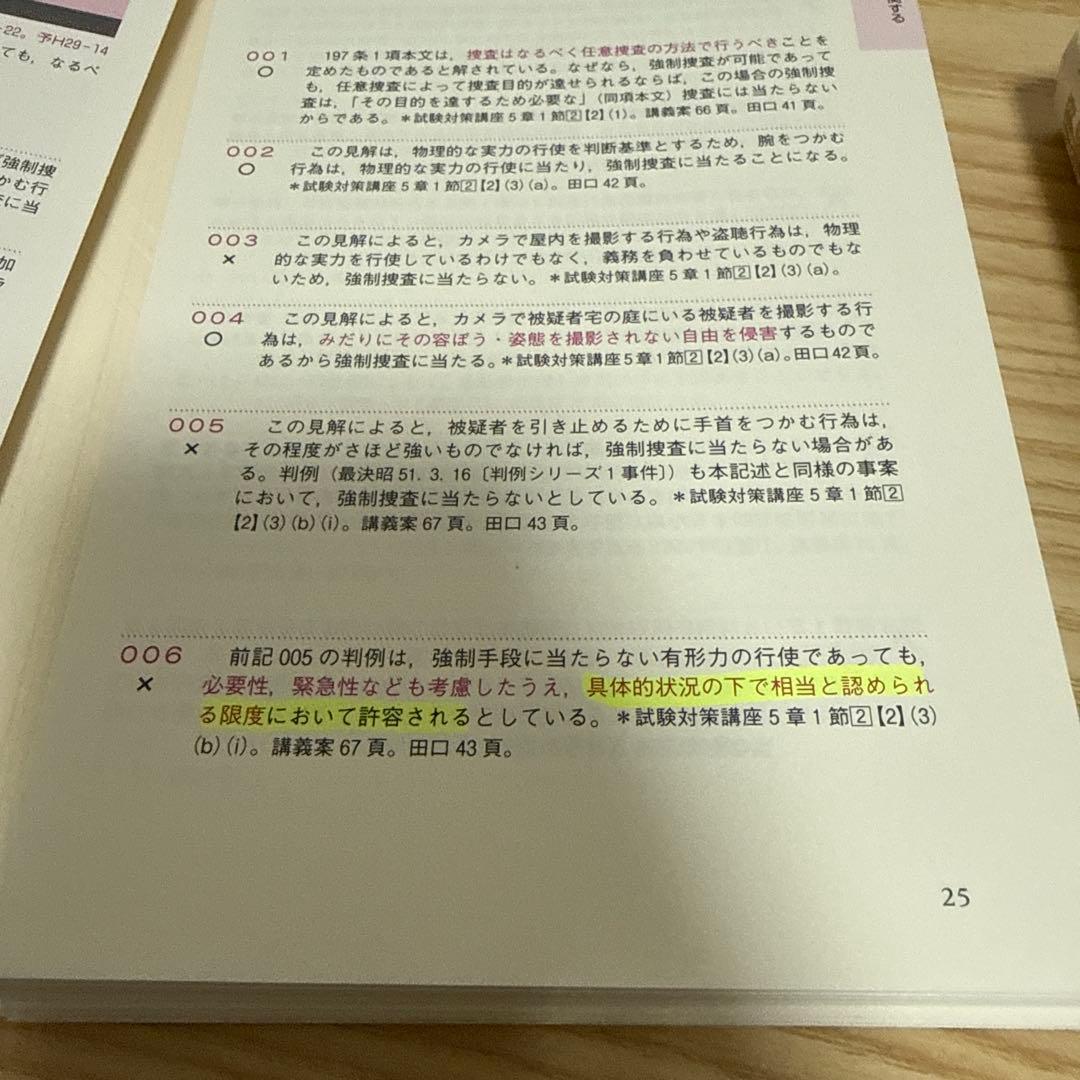 -22。予H29-14
ても，なるべ
強制捜
かむ行
に当
加
する
001 197条1項本文は，捜査はなるべく任意捜査の方法で行うべきことを
○ 定めたものであると解されている。なぜなら，強制捜査が可能であって
も，任意捜査によって捜査目的が達せられるならば，この場合の強制捜
査は，「その目的を達するため必要な」（同項本文）捜査には当たらない
からである。＊試験対策講座5章1節②【2】(1)。講義案66頁。田口41頁。
002 この見解は，物理的な実力の行使を判断基準とするため，腕をつかむ
○ 行為は，物理的な実力の行使に当たり，強制捜査に当たることになる。
＊試験対策講座5章1節②【2】(3)(a)。田口42頁。
003 この見解によると，カメラで屋内を撮影する行為や盗聴行為は，物理
× 的な実力を行使しているわけでもなく，義務を負わせているものでもな
いため，強制捜査に当たらない。＊試験対策講座5章1節②【2】(3)(a)。
004 この見解によると，カメラで被疑者宅の庭にいる被疑者を撮影する行
○ 為は，みだりにその容ぼう・姿態を撮影されない自由を侵害するもので
あるから強制捜査に当たる。＊試験対策講座5章1節②【2】(3)(a)。田口42頁。
005 この見解によると，被疑者を引き止めるために手首をつかむ行為は，
× その程度がさほど強いものでなければ，強制捜査に当たらない場合があ
る。判例（最決昭51. 3. 16〔判例シリーズ1事件〕）も本記述と同様の事案
において，強制捜査に当たらないとしている。＊試験対策講座5章1節②
【2】(3)(b)(i)。講義案67頁。田口43頁。
006 前記005の判例は，強制手段に当たらない有形力の行使であっても，
× 必要性，緊急性なども考慮したうえ，具体的状況の下で相当と認められ
る限度において許容されるとしている。＊試験対策講座5章1節②【2】(3)
(b)(i)。講義案67頁。田口43頁。
25